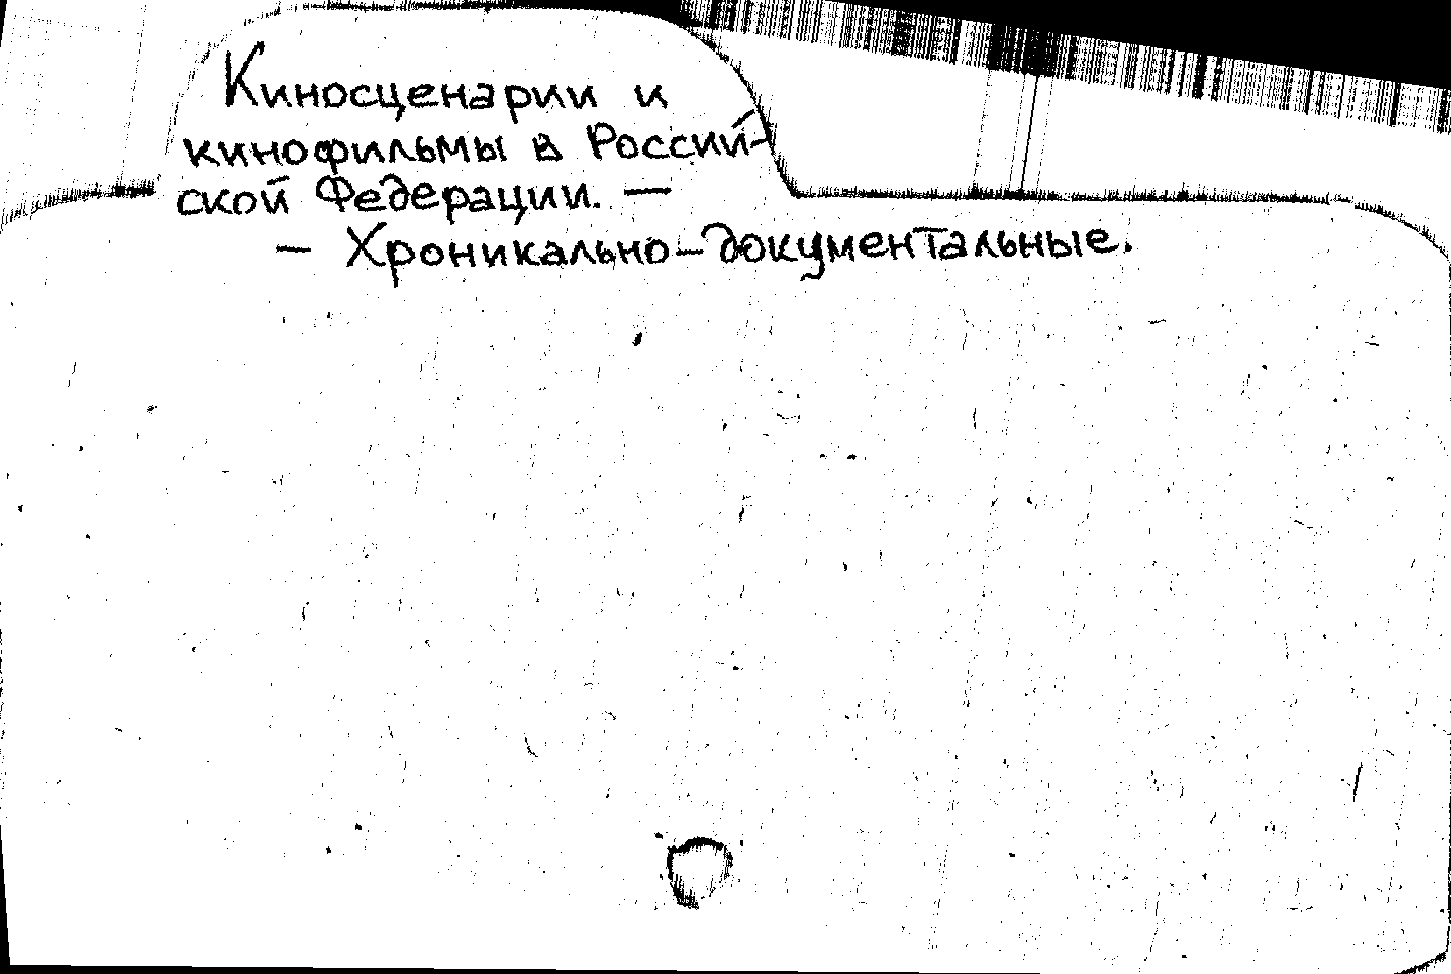 Киносценарии и
кинофильмы в Россий-
ской Федерации. —
— Хроникально-документальные.